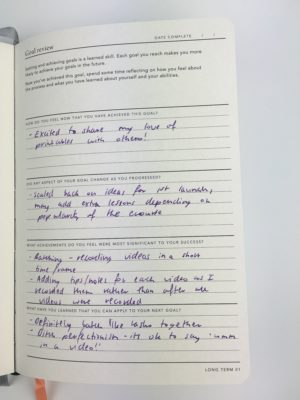 Goal review
DATE COMPLETE / /
Setting and achieving goals is a learned skill. Each goal you reach makes you more
likely to achieve your goals in the future.
Now you've achieved this goal, spend some time reflecting on how you feel about
the process and what you have learned about yourself and your abilities.
HOW DO YOU FEEL NOW THAT YOU HAVE ACHIEVED THIS GOAL?
- Excited to share my love of
printables with others!
DID ANY ASPECT OF YOUR GOAL CHANGE AS YOU PROGRESSED?
- Scaled back on ideas for 1st launch,
may add extra lessons depending on
popularity of the ecourse
WHAT ACHIEVEMENTS DO YOU FEEL WERE MOST SIGNIFICANT TO YOUR SUCCESS?
- Batching - recording videos in a short
time frame
- Adding tips/notes for each video as I
recorded them rather than after all
videos were recorded
WHAT HAVE YOU LEARNED THAT YOU CAN APPLY TO YOUR NEXT GOAL?
- Definitely batch like tasks together
- Ditch perfectionism - it's ok to say
in a video!!
LONG TERM 01